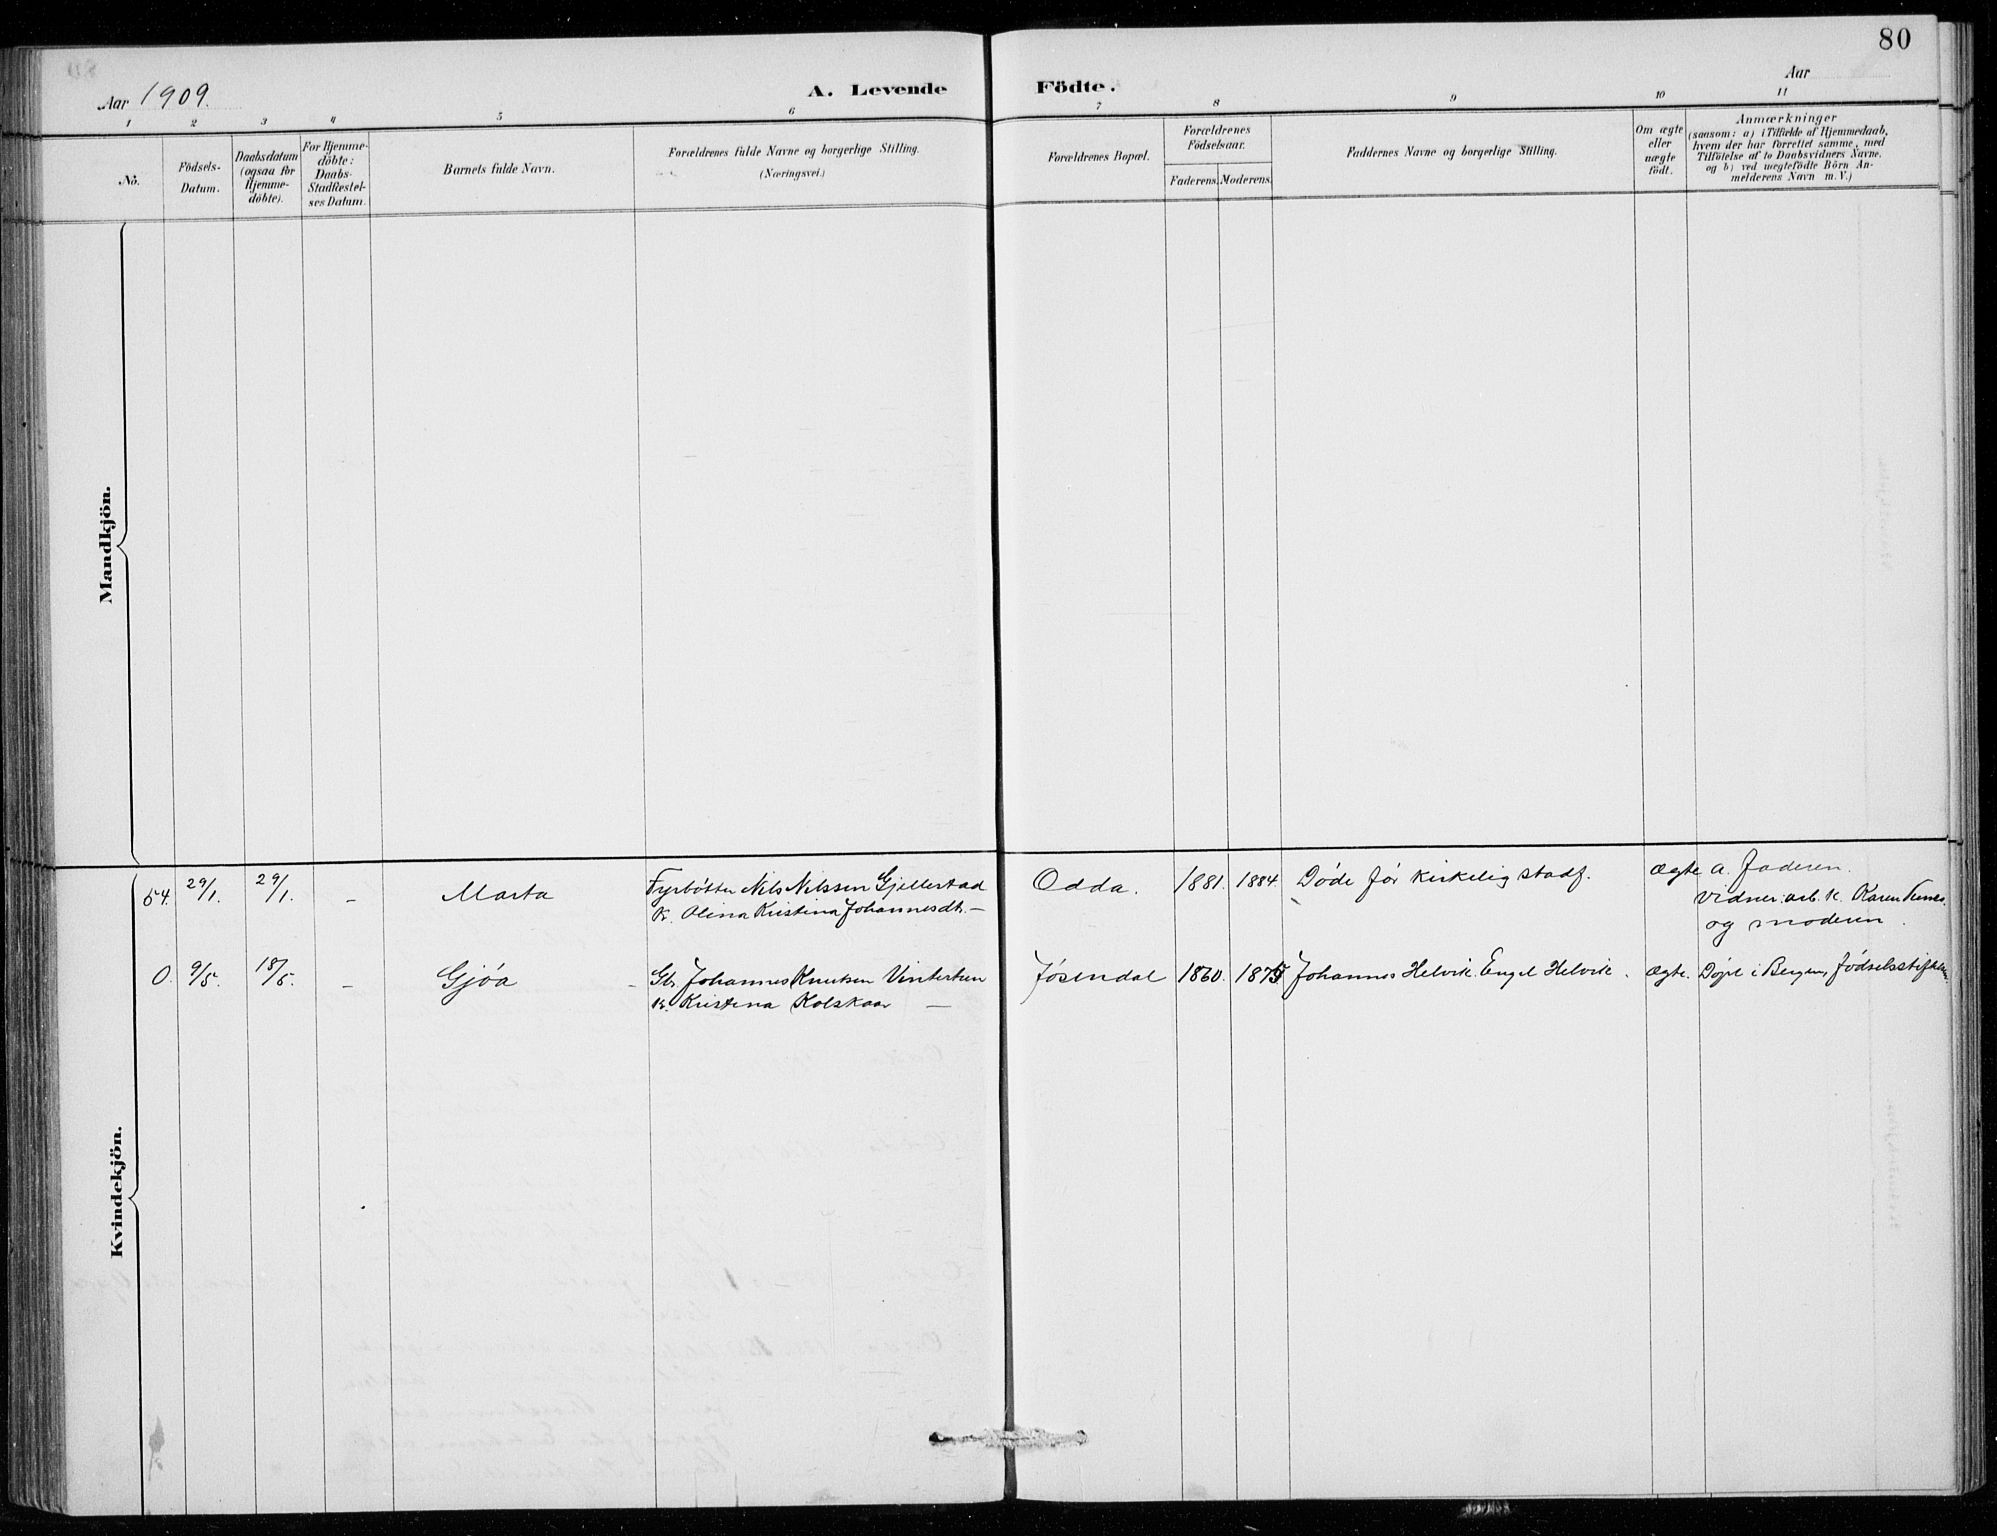 80
Aar 1909.
A. Levende Födte.
Aar
1 2 3 4 5 6 7 8 9 10 11
No.
Födsels-
Datum.
Daabsdatum
(ogsaa for
Hjemme-
döbte).
For Hjemme-
döbte:
Daabs-
Stadfæstel-
ses Datum.
Barnets fulde Navn.
Forældrenes fulde Navne og borgerlige Stilling.
(Næringsvei.)
Forældrenes Bopæl.
Forældrenes
Födselsaar.
Faderens. Moderens.
Faddernes Navne og borgerlige Stilling.
Om ægte
eller
uægte
födt.
Anmærkninger
(saasom: a) i Tilfælde af Hjemmedaab,
hvem der har forrettet samme, med
Tilföielse af to Daabsvidners Navne,
og b) ved uægtefödte Börn An-
melderens Navn m. V.)
Mandkjön.
Kvindekjön.
54. 29/1. 29/1. - Marta
Fyrbøtter Nils Nilssen Gjellestad
K. Olina Kristina Johannesdt. -
Odda. 1881. 1884. Døde før kirkelig stadf. ægte
a. Faderen.
Vidner: arb. K. Karen
og moderen.
0. 9/5. 18/5. - Gjøa -
Gb. Johannes Knutsen Vintertun
K. Kristina Kolskaar -
Jøsendal 1860. 1875 Johannes Helvik. Engel Helvik. ægte. Døpt i Bergens Fødselsstiftelse